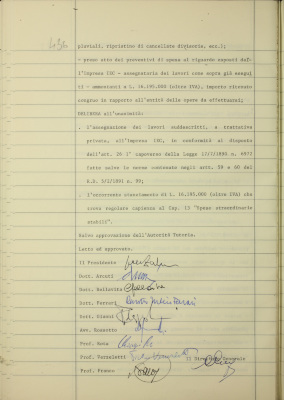 pluviali, ripristino di cancellate divisorie, ecc.);
- preso atto dei preventivi di spesa al riguardo esposti dal-
l'Impresa ISC - assegnataria dei lavori come sopra già esegui
ti - ammontanti a L. 16.193.000 (oltre IVA), importo ritenuto
congruo in rapporto all'entità delle opere da effettuarsi;
DELIBERA all'unanimità:
. l'assegnazione dei lavori suddescritti, a trattativa
privata, all'Impresa ISC, in conformità al disposto
dell'art. 26 1° capoverso della Legge
fatte salve le norme contenute negli artt. 59 e 60 del
R.D. 5/2/1891 n. 99;
. l'occorrente stanziamento di L. 16.193.000 (oltre IVA) che
trova regolare capienza al Cap. 11 "Spese straordinarie
stabili".
Salvo approvazione dell'Autorità Tutoria.
Letto ed approvato.
Il Presidente
Dott.
Dott. Bellavita
Dott. Ferrari
Dott. Gianni
Avv.
Prof.
Prof.
Il Direttore Generale
Prof.